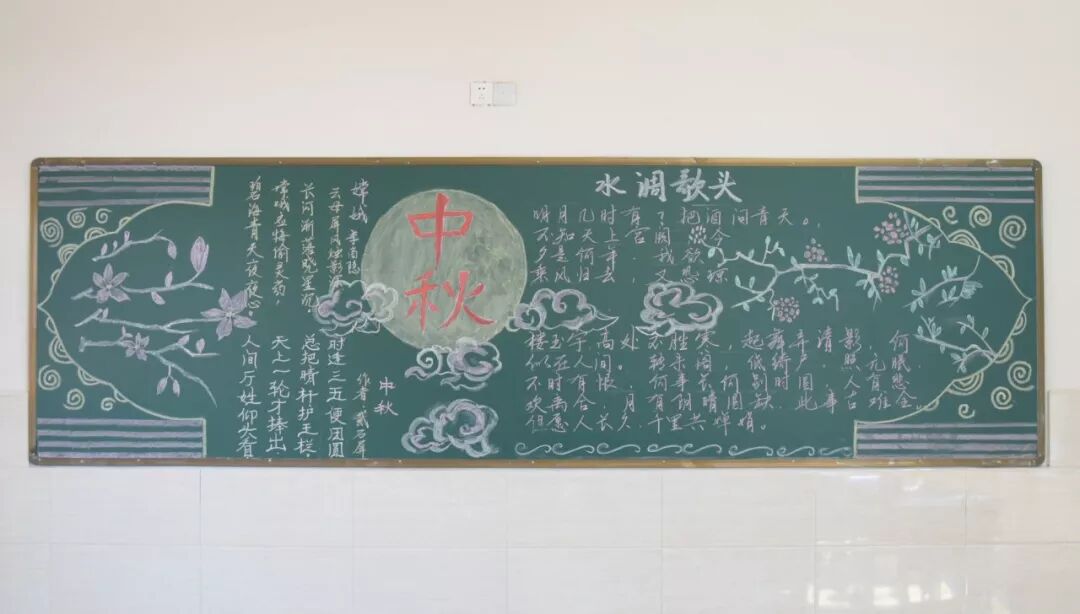 中秋
嫦娥 李商隐
云母屏风烛影深
长河渐落晓星沉
嫦娥应悔偷灵药
碧海青天夜夜心
中秋
作者 戴石屏
时逢三五便团圆
总把晴杆护玉栏
天上一轮才捧出
人间万姓仰头看
水调歌头
明月几时有?把酒问青天。
不知天上宫阙,今
夕是何年,我欲
乘风归去,又恐琼
楼玉宇,高处不胜寒,起舞弄清影,何
似在人间。转朱阁,低绮户,照无眠。
不有恨,何事长 别时圆 人有悲
欢离合,月有阴晴圆缺,此事古难全。
但愿人长久,千里共婵娟。